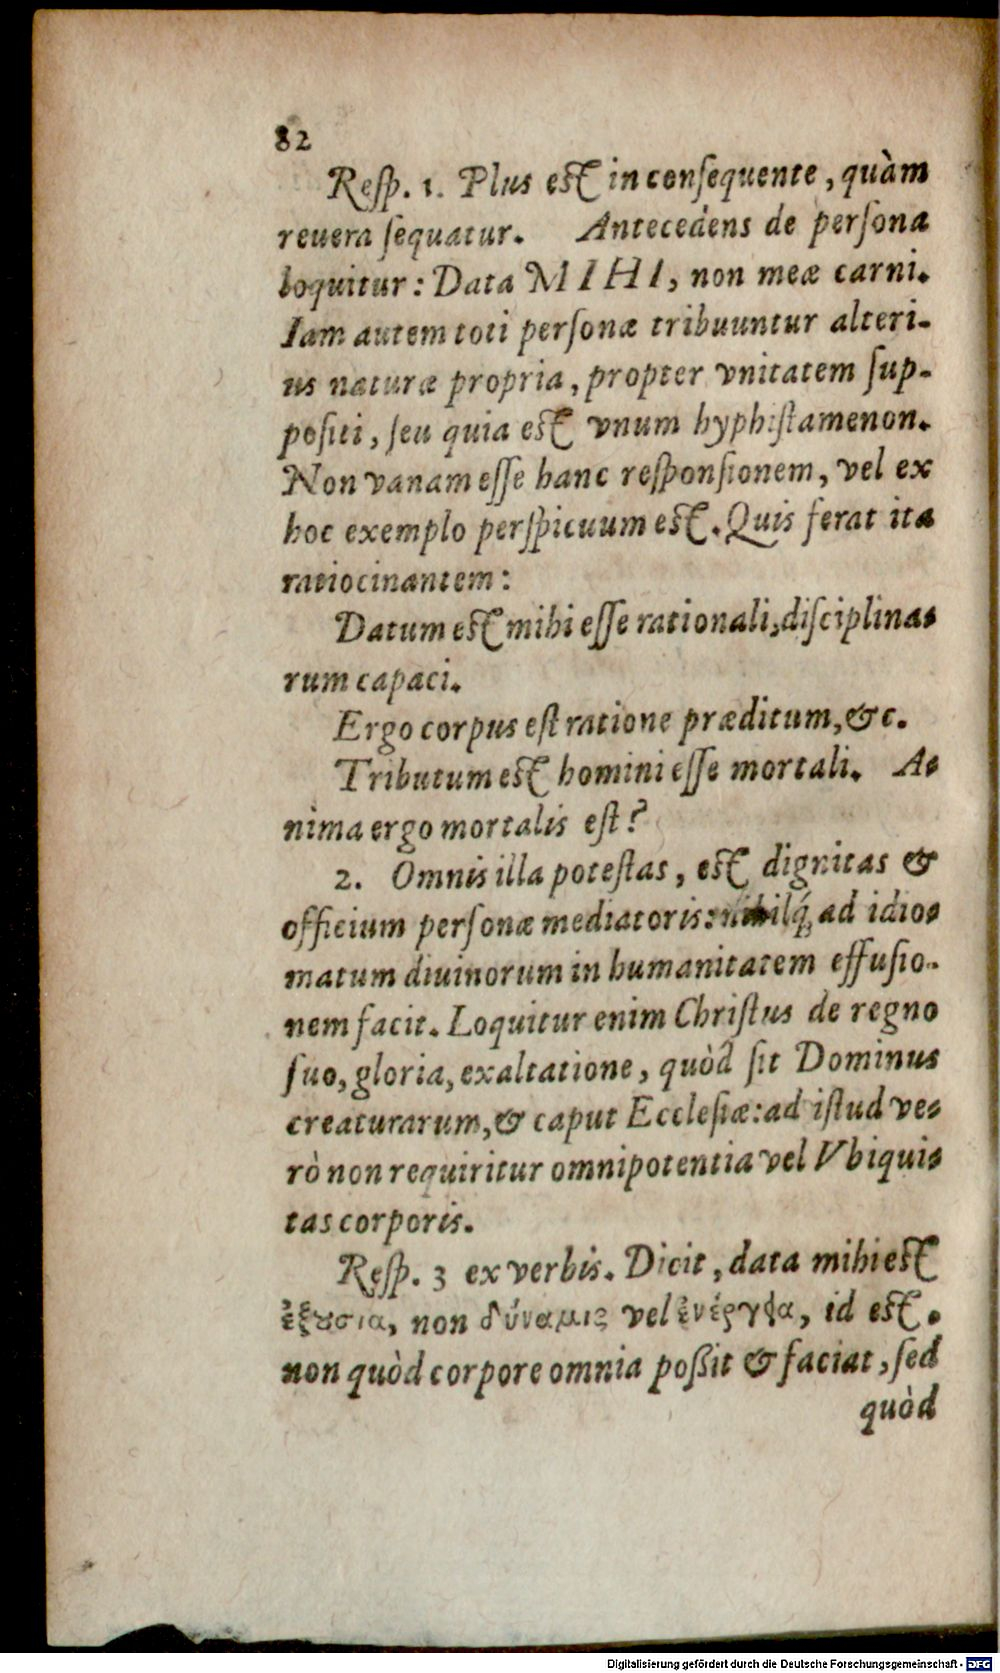 82
Reſp. 1. Plus eſt in conſequente, quàm
reuera ſequatur. Antecedens de perſona
loquitur: Data MIHI, non meæ carni.
Iam autem toti perſonæ tribuuntur alteri-
us naturæ propria, propter vnitatem ſup-
poſiti, ſeu quia eſt vnum hyphiſtamenon.
Non vanam eſſe hanc reſponſionem, vel ex
hoc exemplo perſpicuum eſt. Quis ferat ita
ratiocinantem:
Datum eſt mihi eſſe rationali, diſciplina-
rum capaci.
Ergo corpus eſt ratione præditum, &c.
Tributum eſt homini eſſe mortali. A-
nima ergo mortalis eſt?
2. Omnis illa poteſtas, eſt dignitas &
officium perſonæ mediatoris: nihilq́; ad idio-
matum diuinorum in humanitatem effuſio-
nem facit. Loquitur enim Chriſtus de regno
ſuo, gloria, exaltatione, quòd ſit Dominus
creaturarum, & caput Eccleſiæ: ad iſtud ve-
rò non requiritur omnipotentia vel Vbiqui-
tas corporis.
Reſp. 3 ex verbis. Dicit, data mihi eſt
ἐξȣσια, non δύναμις vel ἐνέργεια, id eſt.
non quòd corpore omnia poßit & faciat, ſed
quòd
Digitalisierung gefördert durch die Deutsche Forschungsgemeinschaft - DFG